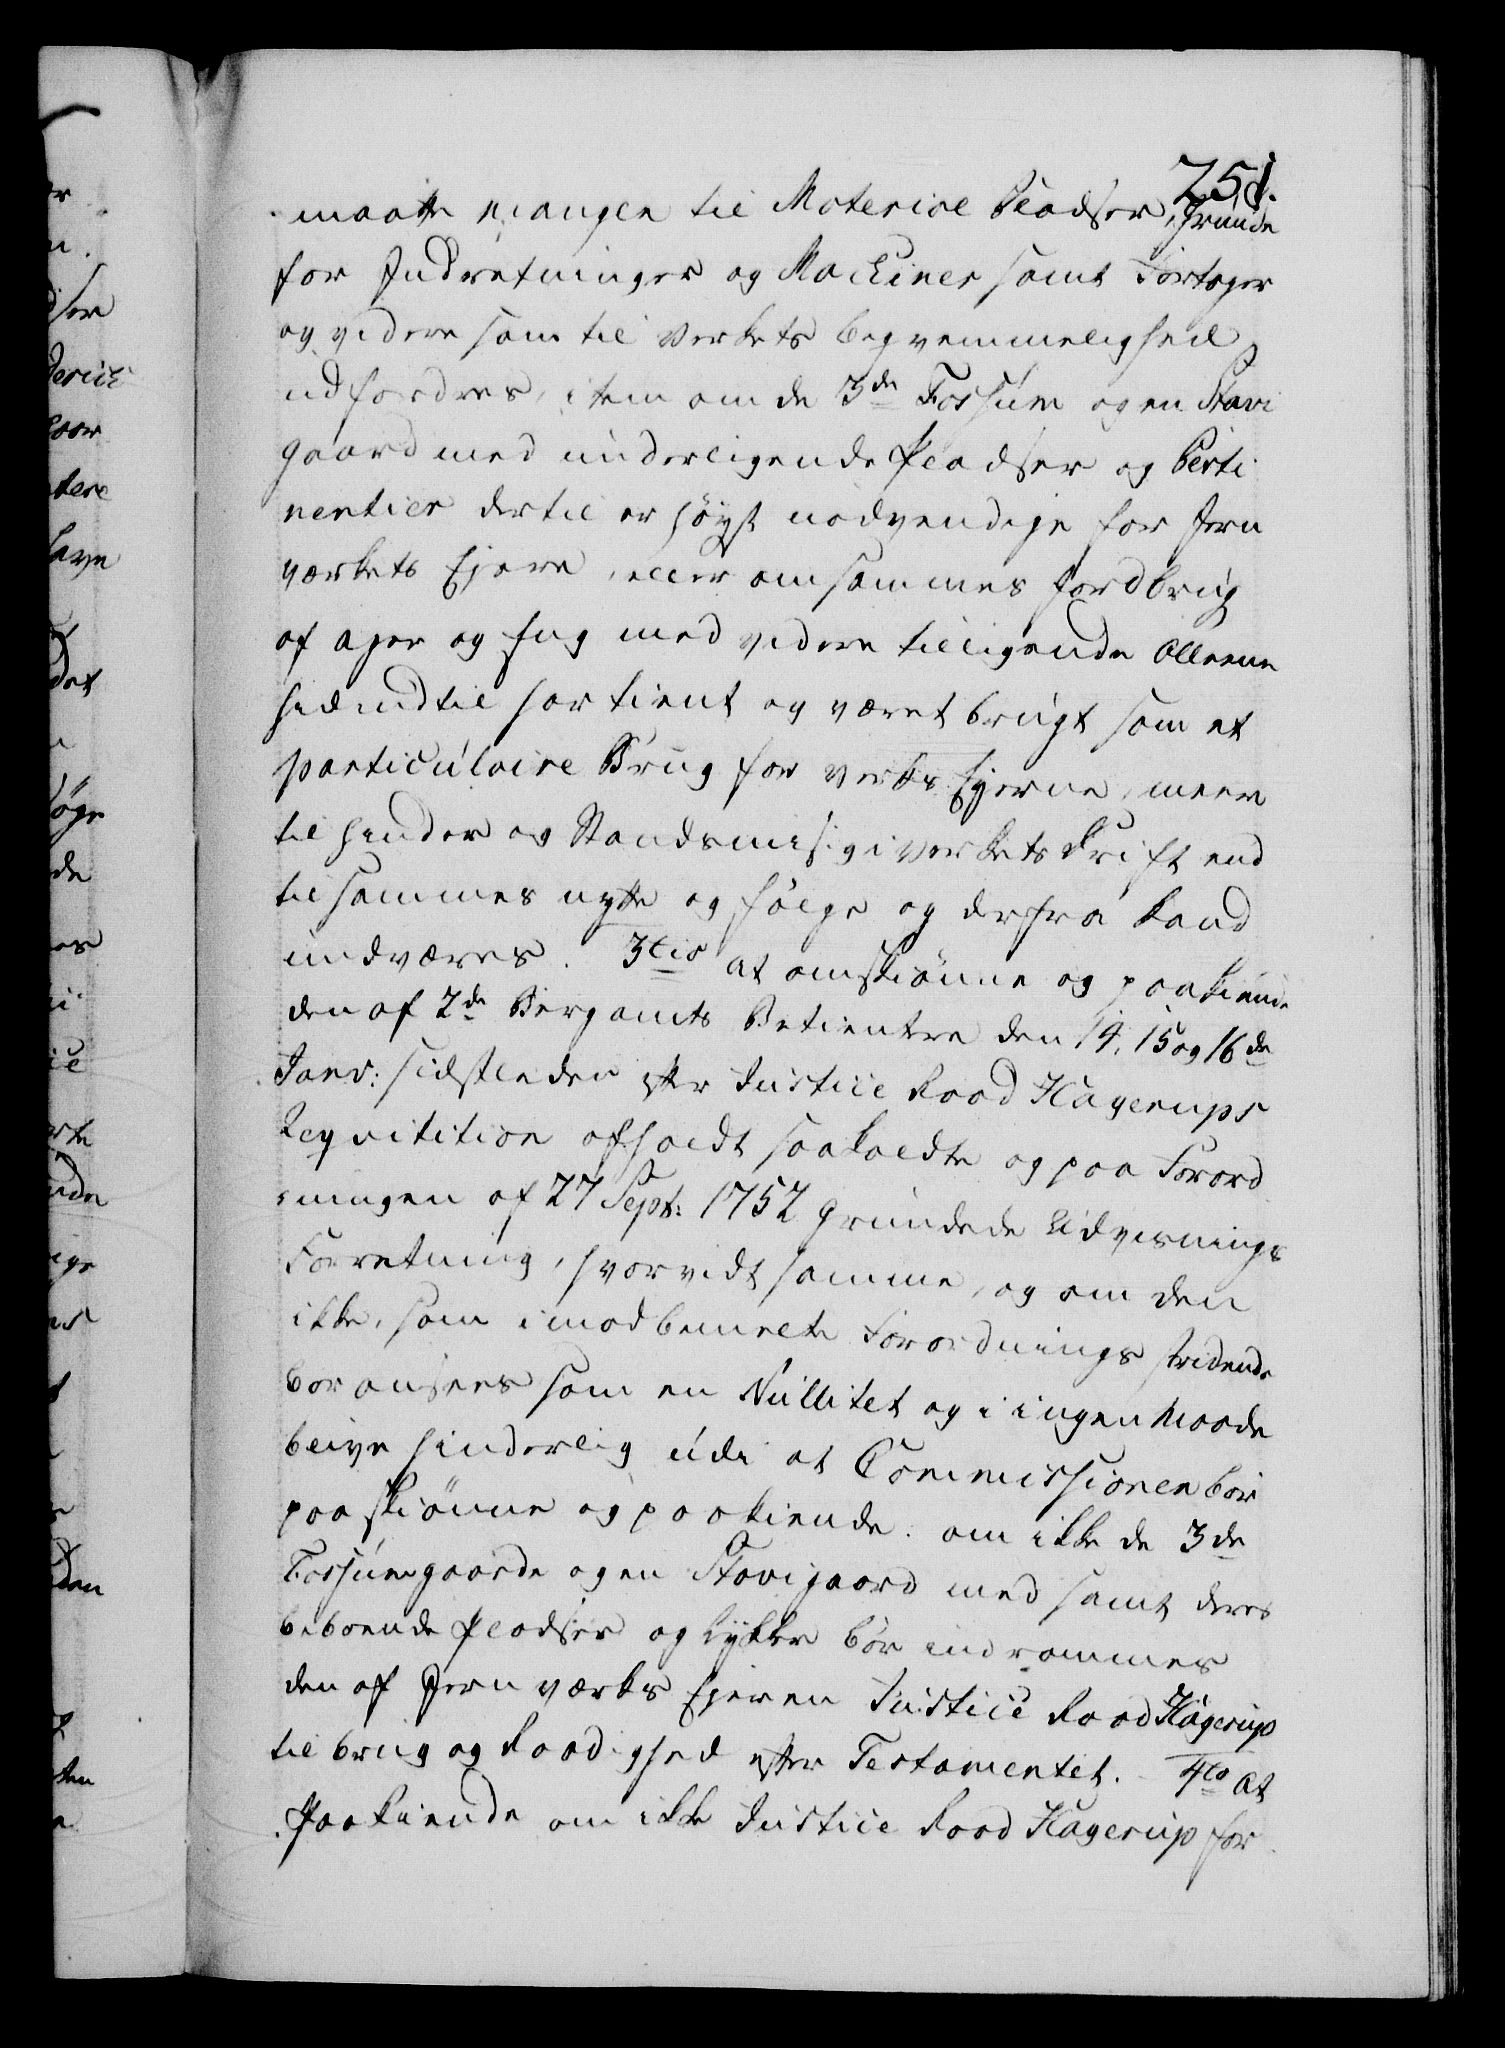 251.
maatte mangle til Materiale Pladser, Grunde
for Indretninger og Machiner samt Fortager
og videre som til Verkets beqvemmelighed
udfordres, item om de 3de Fossum og en Stavi
gaard med underligende Pladser og Perti
nentier dertil er höyst nödvendige for Jern
værkets Ejere, eller om sammes Jordbrug
af ager og Eng med videre tilligende Alleene
hidindtil har tient og været brugt som et
particulaire Brug for verks Ejerne, meere
til hinder og Standsning i Verkets Drift end
til sammes nytte og fölge og derfra kand
undværes. 3tio at omskiönne og paakiende
den af 2de Bergamts Betientere den 14, 15 og 16de
Janv: sidstleden efter Justice Raad Hagerups
Reqvisition afholdt saakaldte og paa Forord
ningen af 27 Sept: 1752 grundede Udvisnings
Forretning, hvorvidt samme, og om den
ikke, som imod bemelte Forordnings stridende
bör ansees som en Nullitet og i ingen Maade
blive hinderlig udi at Commissionen bör
paa skiönne og paakiende: om ikke de 3de
Fossumgaarde og en Stavigaard med samt deres
beboende Pladser og Lykker bör indrömmes
den af Jernværks Ejeren Justice Raad Hagerup
til brug og Raadighed efter Testamentet. 4to at
Paakiende om ikke Justice Raad Hagerup for